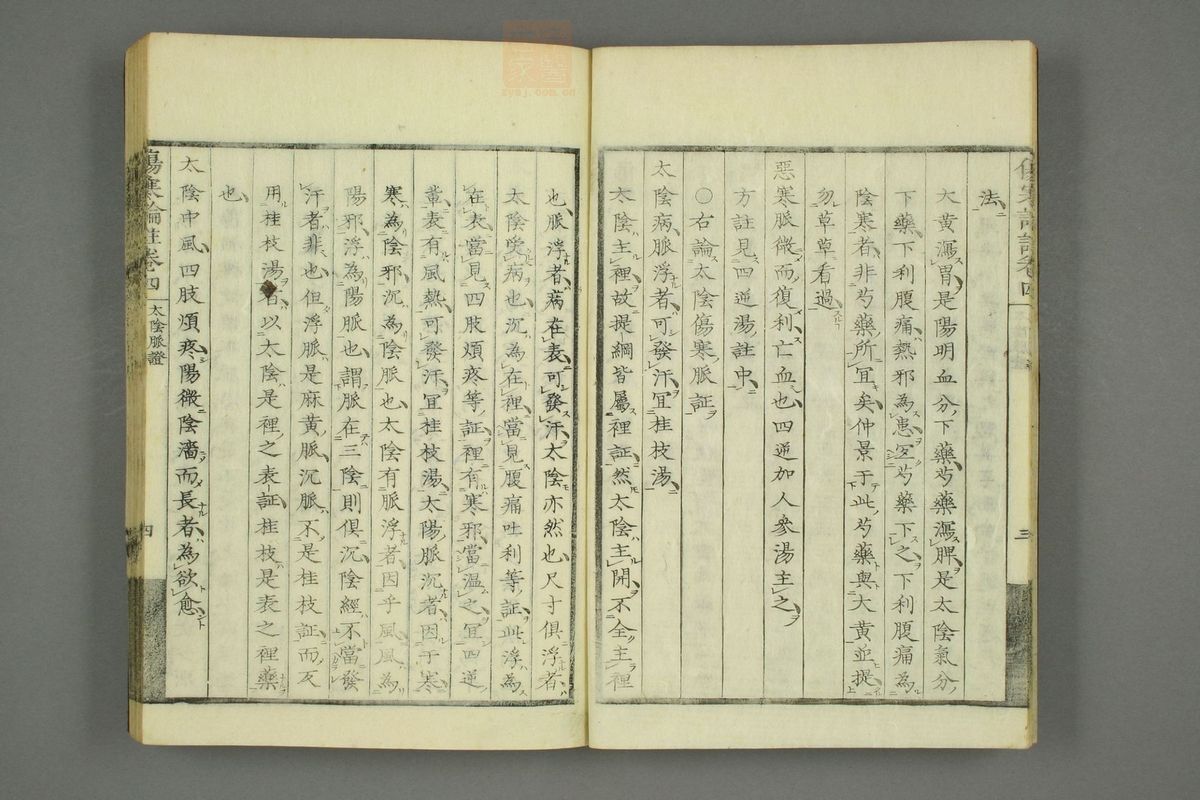 法
大黄瀉胃是陽明血分下藥芍藥瀉脾是太陰氣分
下藥下利腹痛熱邪為患宜芍藥下之下利腹痛為
陰寒者非芍藥所宜矣仲景于此芍藥與大黄並提
勿草草看過
惡寒脈微而復利亡血也四逆加人參湯主之
方註見四逆湯註中
〇右論太陰傷寒脈証
太陰病脈浮者可發汗宜桂枝湯
太陰主裡故提綱皆屬裡証然太陰主開不全主裡
也脈浮者病在表可發汗太陰亦然也尺寸俱浮者
太陰受病也沉為在裡當見腹痛吐利等証此浮為
在表當見四肢煩疼等証裡有寒邪當溫之宜四逆
軰表有風熱可發汗宜桂枝湯太陽脈沉者因于寒
寒為陰邪沉為陰脈也太陰有脈浮者因乎風風為
陽邪浮為陽脈也謂脈在三陰則俱沉陰經不當發
汗者非也但浮脈是麻黄脈沉脈不是桂枝証而反
用桂枝湯者以太陰是裡之表証桂枝是表之裡藥
也
太陰中風四肢煩疼陽微陰濇而長者為欲愈
傷寒論註卷四
太陰脈證
四
三